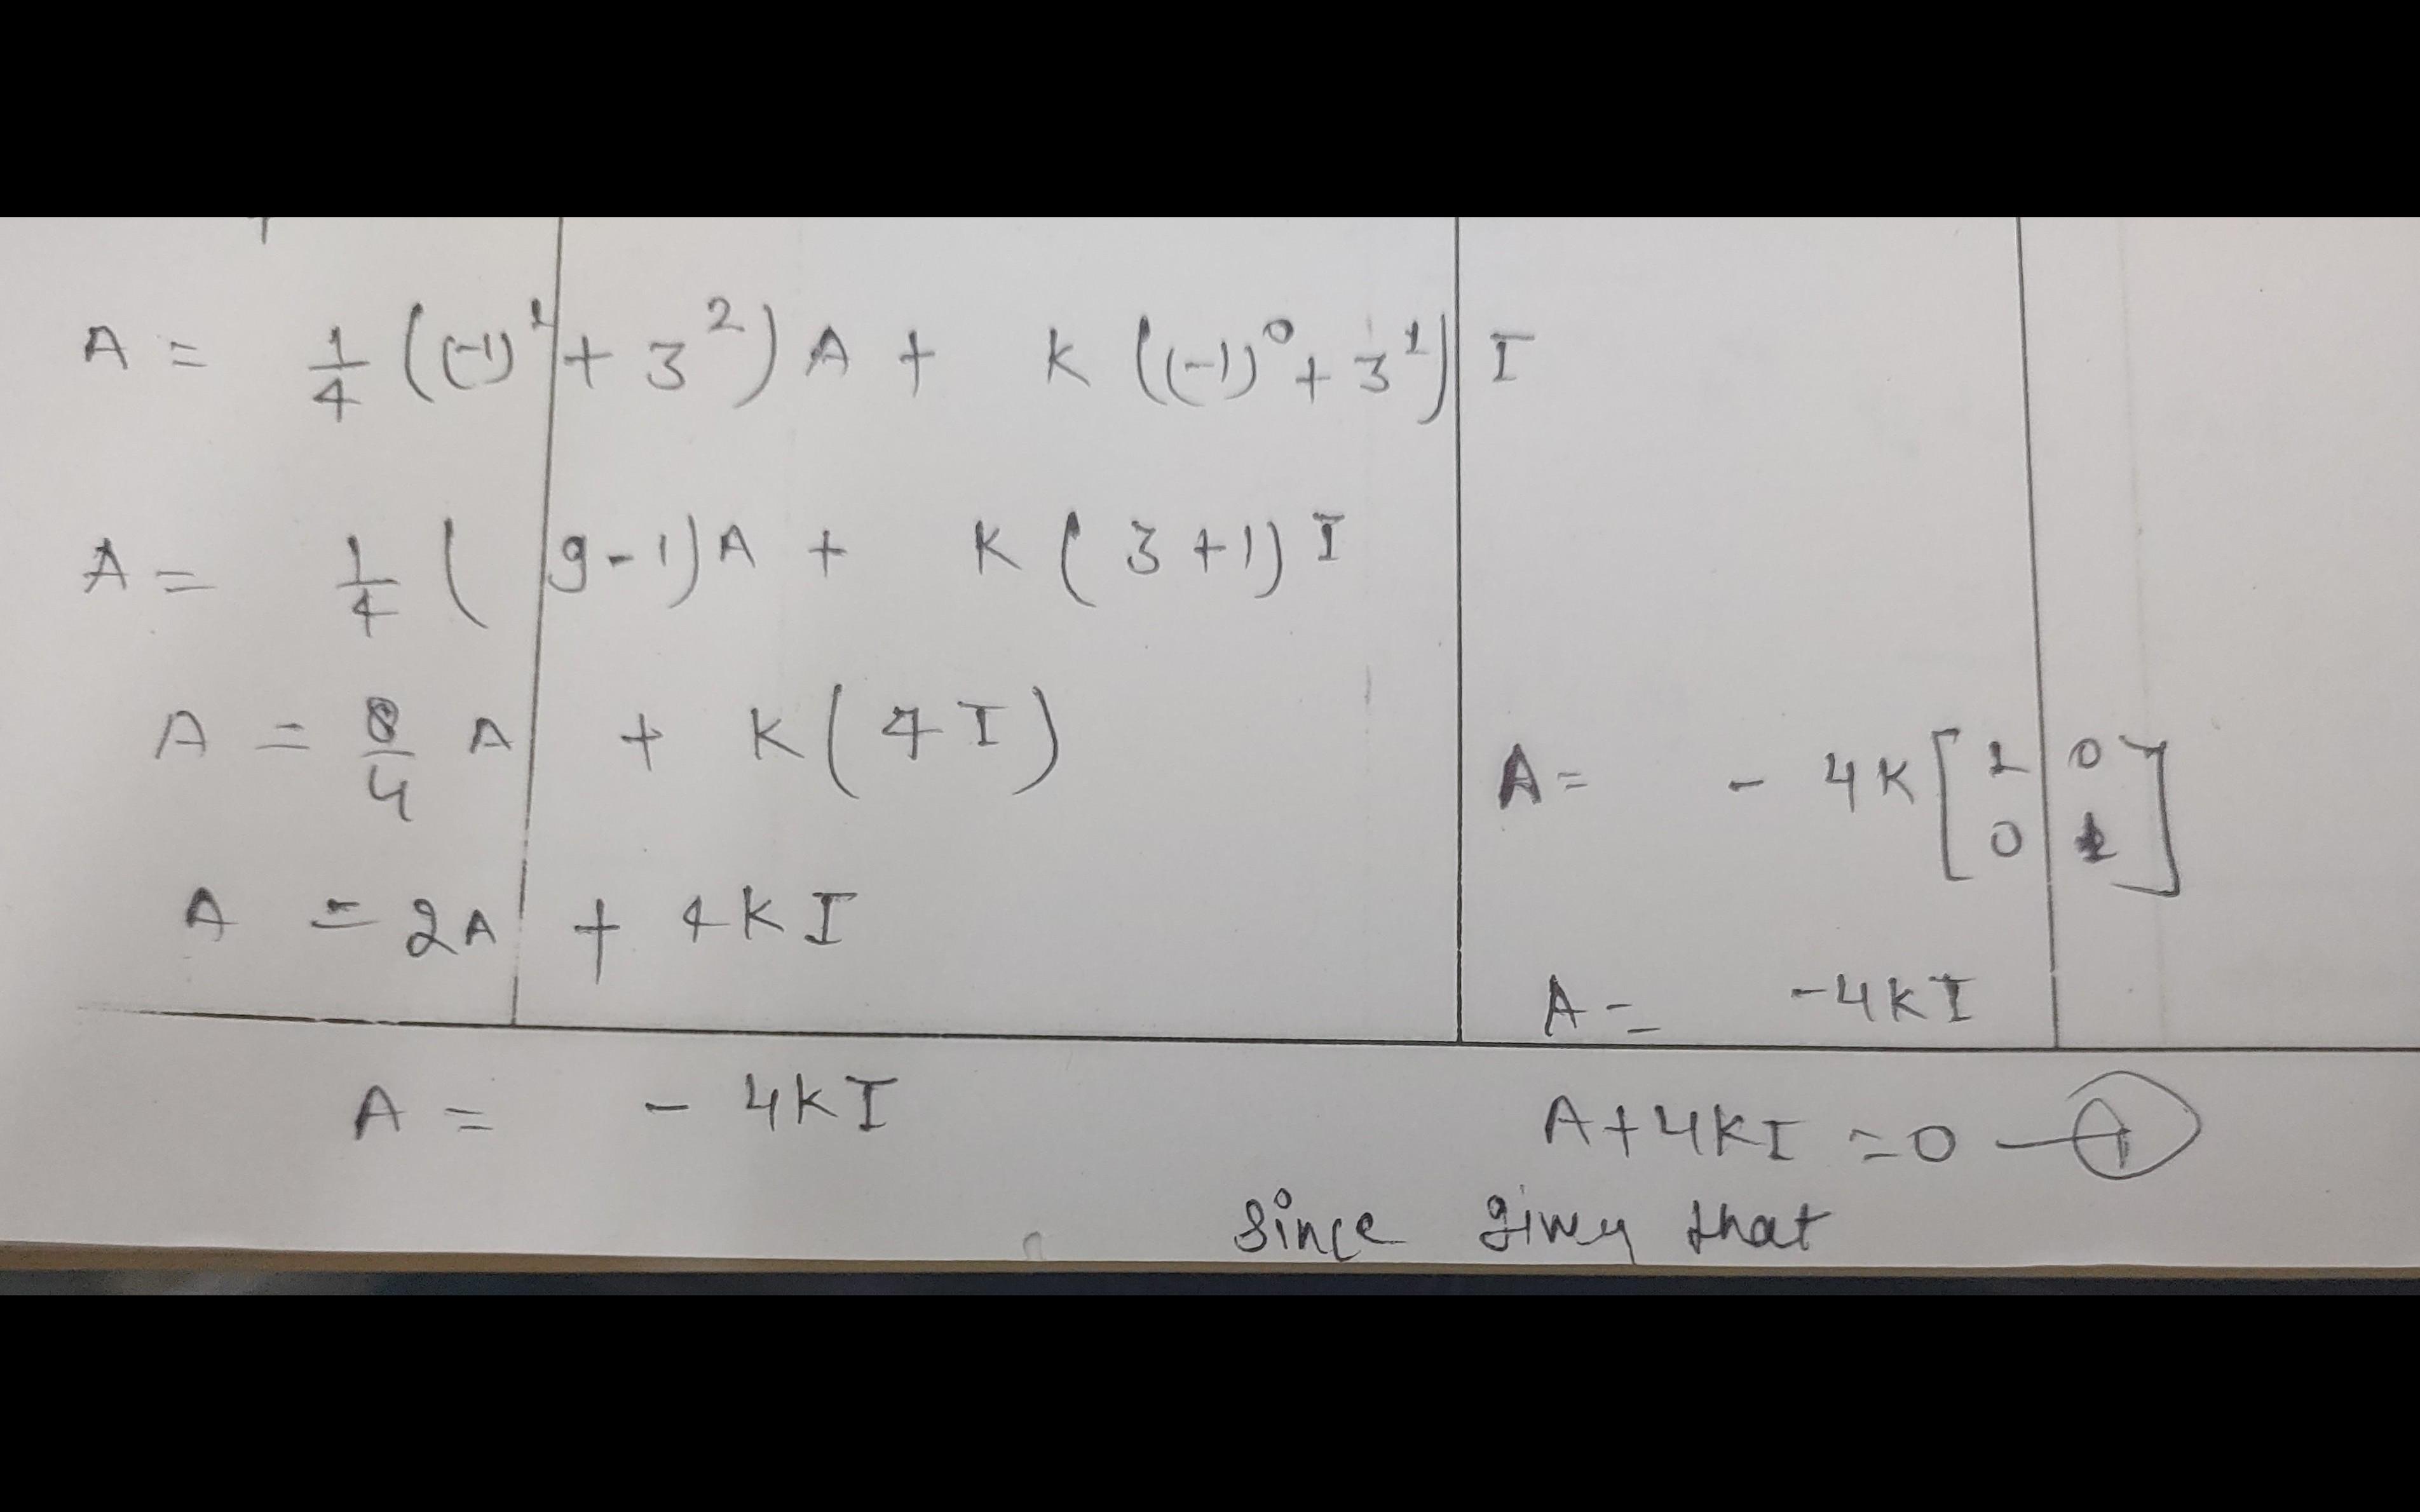 A = 1/4 ((-1)^1 + 3^2) A + K ((-1)^0 + 3^1) I
A = 1/4 ( 9-1) A + K ( 3 +1) I
A = 8/4 A + K ( 4 I )
A = 2A + 4KI
A = - 4KI
A = - 4K [ 1 0
0 1 ]
A = -4KI
A + 4KI = 0 — 1
Since given that